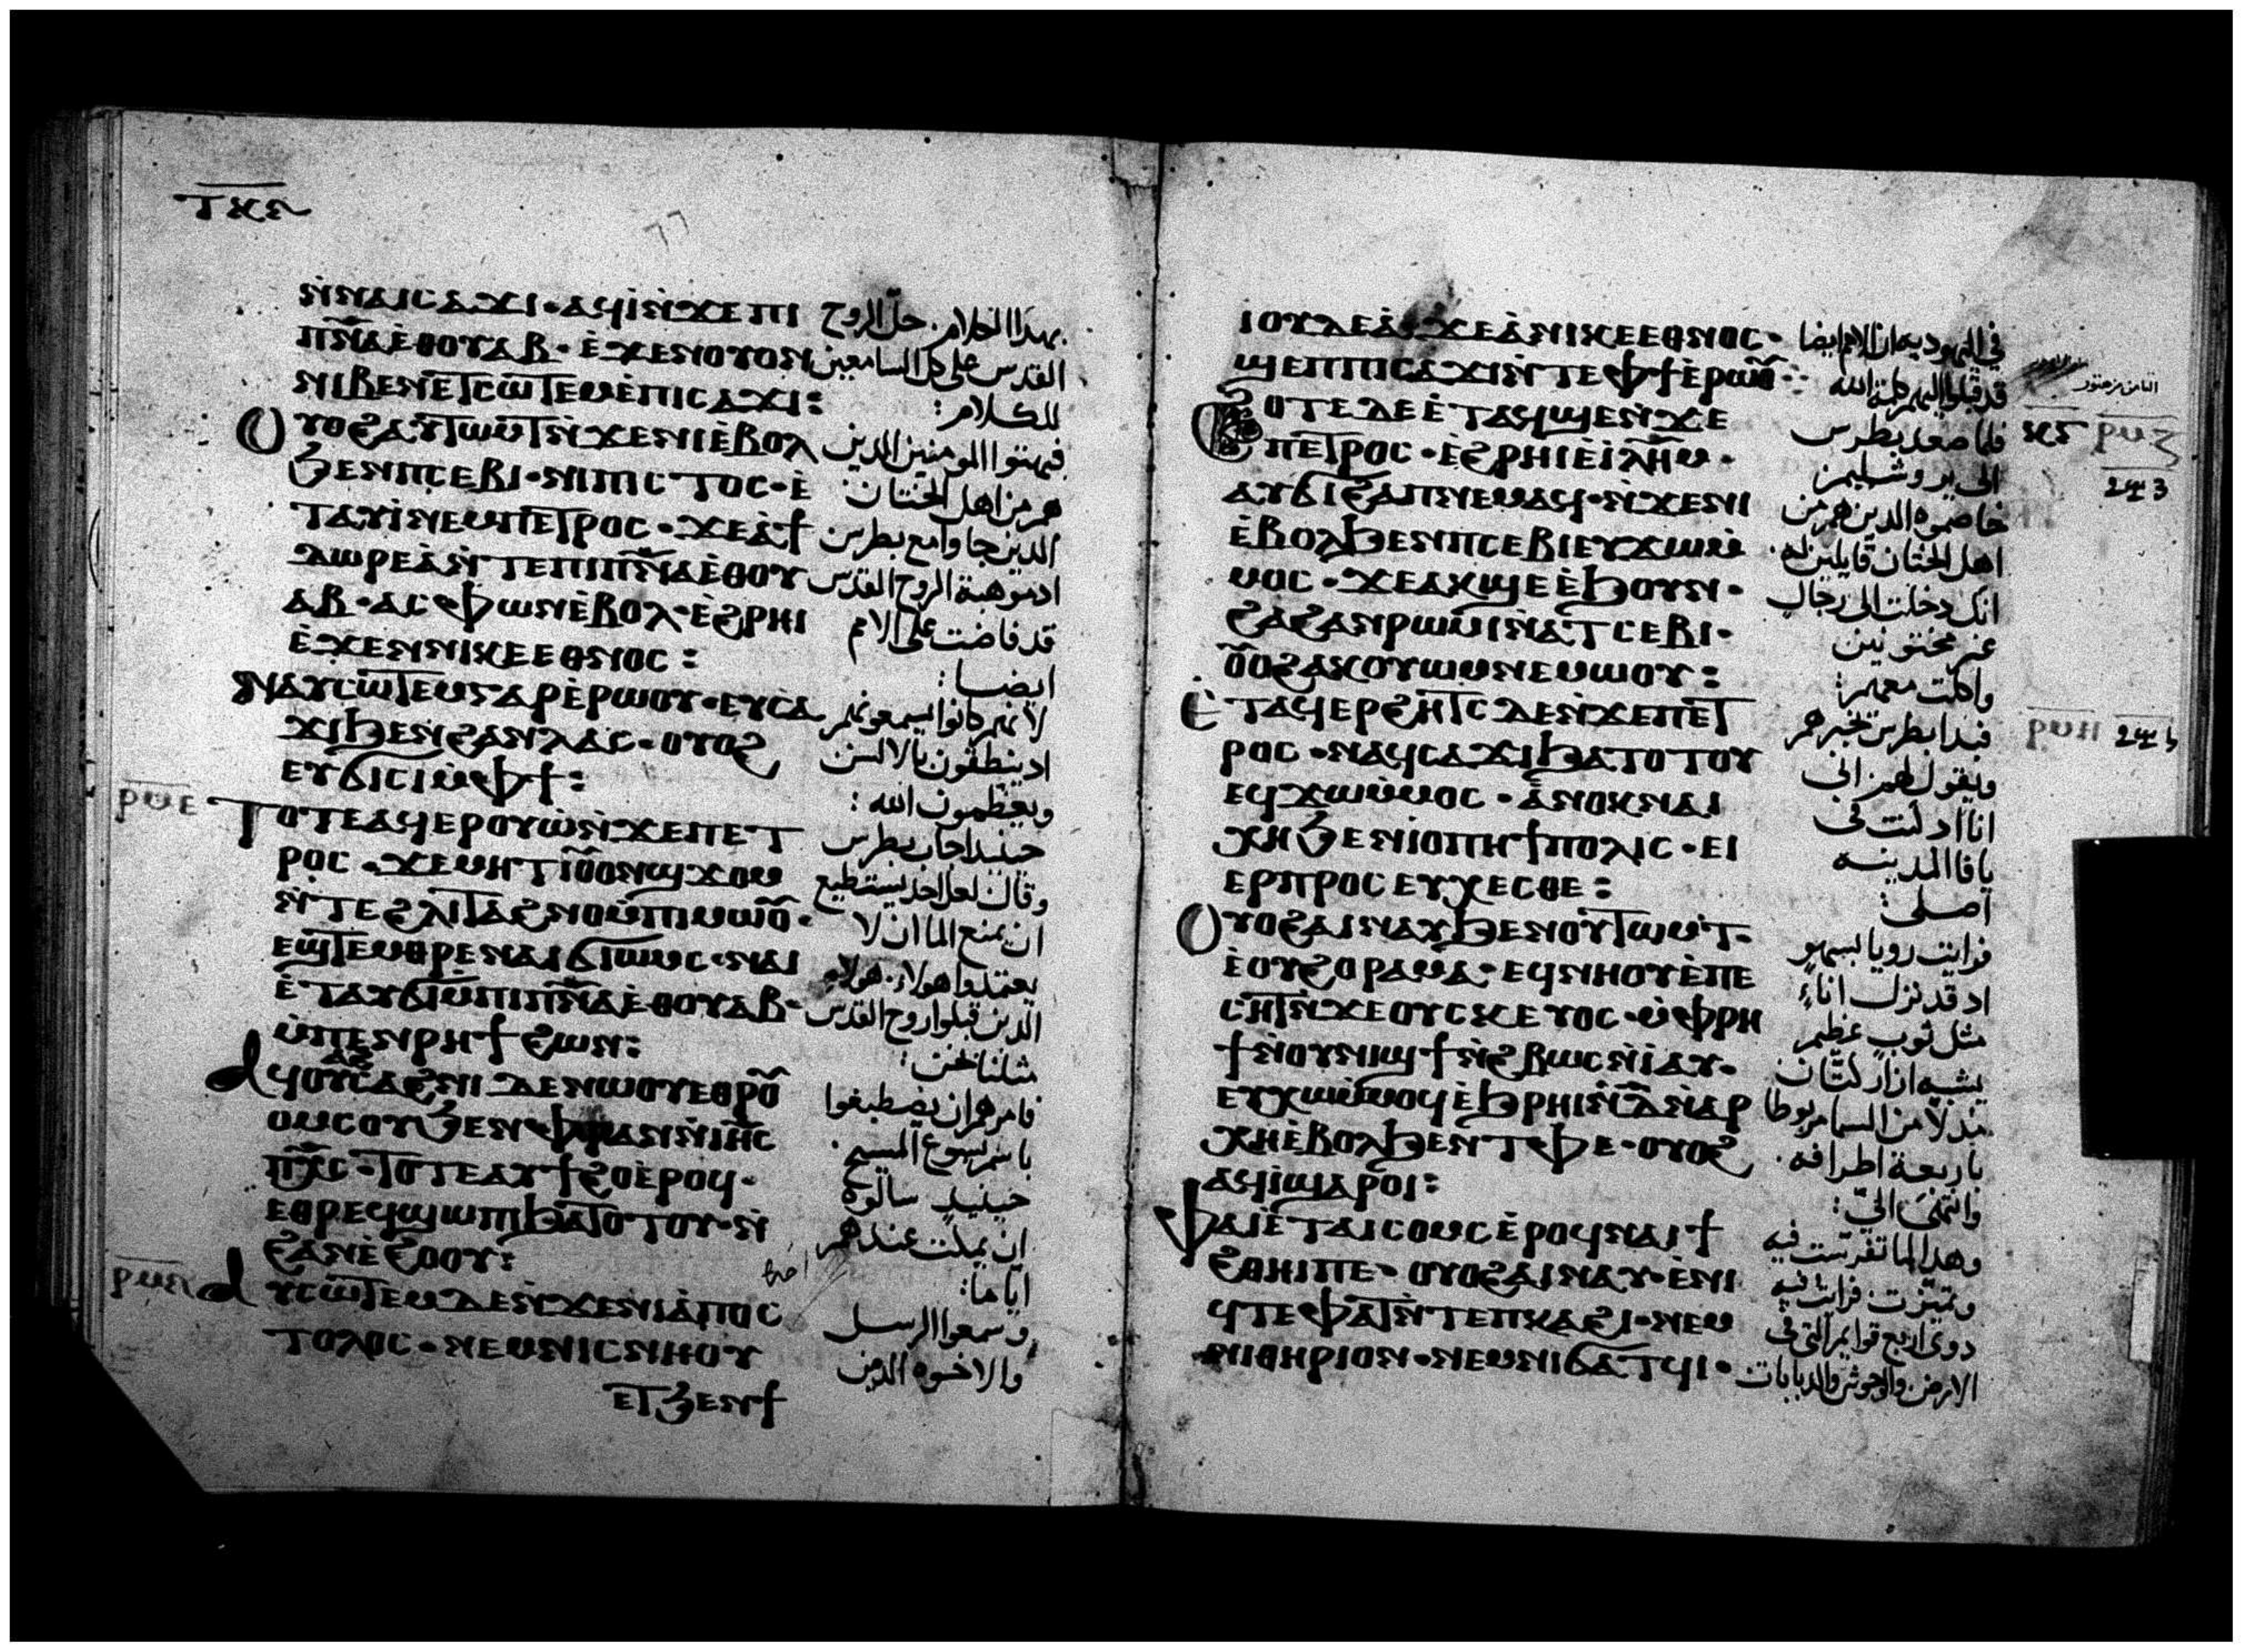 ⲛ̀ⲛⲁⲓⲥⲁϫⲓ· ⲁϥⲓ̀ⲛ̀ϫⲉⲡⲓ
ⲡ̅ⲛ̅ⲁ̅ⲉ̀ⲑⲟⲩⲁⲃ· ⲉ̀ϫⲉⲛⲟⲩⲟⲛ
ⲛⲓⲃⲉⲛⲉ̀ⲧⲥⲱⲧⲉⲙⲉ̀ⲡⲓⲥⲁϫⲓ:
ⲟⲩⲟϩⲁⲩⲧⲱⲙⲧⲛ̀ϫⲉⲛⲓⲉ̀ⲃⲟⲗ
ϧⲉⲛⲡⲥⲉⲃⲓ· ⲙ̀ⲡⲓⲥⲧⲟⲥ· ⲉ̀
ⲧⲁⲩⲓ̀ⲛⲉⲙⲡⲉⲧⲣⲟⲥ· ϫⲉⲁ̀ϯ
ⲇⲱⲣⲉⲁ̀ⲛ̀ⲧⲉⲡⲓⲡ̅ⲛ̅ⲁ̅ⲉ̀ⲑⲟⲩ
ⲁⲃ· ⲁⲥⲫⲱⲛⲉ̀ⲃⲟⲗ· ⲉ̀ϩⲣⲏⲓ
ⲉ̀ϫⲉⲛⲛⲓⲕⲉⲉⲑⲛⲟⲥ:
ⲛⲁⲩⲥⲱⲧⲉⲙⲅⲁⲣⲉ̀ⲣⲱⲟⲩ· ⲉⲩⲥⲁ
ϫⲓϧⲉⲛϩⲁⲛⲗⲁⲥ· ⲟⲩⲟϩ
ⲉⲩϭⲓⲥⲓⲙ̀ⲫϯ:
ⲧⲟⲧⲉⲁϥⲉⲣⲟⲩⲱ̀ⲛ̀ϫⲉⲡⲉⲧ
ⲣⲟⲥ· ϫⲉⲙⲏⲧⲓⲟ̅ⲟ̅ⲛϣϫⲟⲙ
ⲛ̀ⲧⲉϩⲗⲓⲧⲁϩⲛⲟⲙ̀ⲡⲓⲙⲱⲟ̅·
ⲉϣⲧⲉⲙⲑⲣⲉⲛⲁⲓϭⲓⲱⲙⲥ· ⲛⲁⲓ
ⲉ̀ⲧⲁⲩϭⲓⲙ̀ⲡⲓⲡ̅ⲛ̅ⲁ̅ⲉ̀ⲑⲟⲩⲁⲃ·
ⲙ̀ⲡⲉⲛⲣⲏϯϩⲱⲛ:
ⲁϥⲟⲩⲁϩⲥⲁϩⲛⲓ ⲇⲉⲛⲱⲟⲩⲉⲑⲣⲟ̅
ⲟⲙⲥⲟⲩϧⲉⲛⲫⲣⲁⲛⲛ̀ⲓⲏ̅ⲥ̅
ⲡ̅ⲭ̅ⲥ̅· ⲧⲟⲧⲉⲁⲩϯϩⲟⲉ̀ⲣⲟϥ·
ⲉⲑⲣⲉϥϣⲱⲡⲓϧⲁⲧⲟⲧⲟⲩ· ⲛ̀
ϩⲁⲛⲉ̀ϩⲟⲟⲩ:
ⲁⲩⲥⲱⲧⲉⲙⲇⲉⲛ̀ϫⲉⲛⲓⲁ̀ⲡⲟⲥ
ⲧⲟⲗⲟⲥ· ⲛⲉⲙⲛⲓⲥⲛⲏⲟⲩ
ⲉⲧϧⲉⲛϯ
بهذا الكلام. حلّ الروح
القدس على كل السامعين
للكلام:
فبهتوا المومنين الدين
هم من اهل الختان
الدين جاوا مع بطرس
اد موهبة الروح القدس
قد فاضت على الامم
ايضا:
لانهم كانوا يسمعونهم
اد ينطقون بالالسن
ويعظمون الله:
حينيد اجاب بطرس
وقال لعل احد يستطيع
ان يمنع الما ان لا
يعتمدوا هولاء. هولاء
الدين قبلوا روح القدس
مثلنا نحن:
فامرهم ان يصطبغوا
باسم يسوع المسيح.
حينيد سالوه
ان يمكت عندهم
اياما:
وسمعوا الرسل
والاخوه الدين
ⲓⲟⲩⲇⲉⲁ̀· ϫⲉⲁ̀ⲛⲓⲕⲉⲉⲑⲛⲟⲥ·
ϣⲉⲡⲡⲓⲥⲁϫⲓⲛ̀ⲧⲉⲫϯⲉ̀ⲣⲱⲟ̅:
ϩⲟⲧⲉⲇⲉⲉ̀ⲧⲁϥϣⲉⲛ̀ϫⲉ
ⲡⲉⲧⲣⲟⲥ· ⲉ̀ϩⲣⲏⲓⲉ̀ⲓ̀ⲗ̅ⲏ̅ⲙ̅·
ⲁⲩϭⲓϩⲁⲡⲛⲉⲙⲁϥ· ⲛ̀ϫⲉⲛⲓ
ⲉ̀ⲃⲟⲗϧⲉⲛⲡⲥⲉⲃⲓⲉⲩϫⲱⲙ̀
ⲙⲟⲥ· ϫⲉⲁⲕϣⲉⲉ̀ϧⲟⲩⲛ·
ϩⲁϩⲁⲛⲣⲱⲙⲓⲛ̀ⲁⲧⲥⲉⲃⲓ·
ⲟ̅ⲟϩⲁⲕⲟⲩⲱⲙⲛⲉⲙⲱⲟⲩ:
ⲉ̀ⲧⲁϥⲉⲣϩⲏⲧⲥⲇⲉⲛ̀ϫⲉⲡⲉⲧ
ⲣⲟⲥ· ⲛⲁϥⲥⲁϫⲓϧⲁⲧⲟⲧⲟⲩ
ⲉϥϫⲱⲙ̀ⲙⲟⲥ· ⲁ̀ⲛⲟⲕⲛⲁⲓ
ⲭⲏϧⲉⲛⲓⲟⲡⲏϯⲡⲟⲗⲓⲥ· ⲉⲓ
ⲉⲣⲡⲣⲟⲥⲉⲩⲭⲉⲥⲑⲉ:
ⲟⲩⲟϩⲁⲓⲛⲁⲩϧⲉⲛⲟⲩⲧⲱⲙⲧ·
ⲉ̀ⲟⲩϩⲟⲣⲁⲙⲁ· ⲉϥⲛⲏⲟⲩⲉ̀ⲡⲉ
ⲥⲏⲧⲛ̀ϫⲉⲟⲩⲥⲕⲉⲩⲟⲥ· ⲙ̀ⲫⲣⲏ
ϯⲛ̀ⲟⲩⲛⲓϣϯⲛ̀ϩⲃⲱⲥⲛ̀ⲓ̀ⲁⲩ·
ⲉⲩⲭⲱⲙ̀ⲙⲟϥⲉ̀ϧⲣⲏⲓⲛ̀ⲇ̅ⲛ̀ⲁⲣ
ⲭⲏⲉ̀ⲃⲟⲗϧⲉⲛⲧⲫⲉ· ⲟⲩⲟϩ
ⲁϥⲓ̀ϣⲁⲣⲟⲓ:
ⲫⲁⲓⲉ̀ⲧⲁⲓⲥⲟⲙⲥⲉ̀ⲣⲟϥⲛⲁⲓϯ
ϩⲑⲏⲓⲡⲉ· ⲟⲩⲟϩⲁⲓⲛⲁⲩ· ⲉ̀ⲛⲓ
ϥⲧⲉⲫⲁⲧⲛ̀ⲧⲉⲡⲕⲁϩⲓ· ⲛⲉⲙ
ⲛⲓⲑⲏⲣⲓⲟⲛ· ⲛⲉⲙⲛⲓϭⲁⲧϥⲓ·
في اليهوديه ان الامم ايضا
قد قبلوا اليهم كلمة الله
فلما صعد بطرس
الى يروشليم
خاصموه الدين هم من
اهل الختان قايلين له.
انك دخلت الى رجال
غير مختونين
واكلت معهم:
فبدا بطرس يخبرهم
ويقول لهم اني
انا اد كنت في
يافا المدينه
اصلي:
فرايت رويا بسهو
اد قد نزل اناء
مثل ثوب عظيم
يشبه ازار كتان
مدلا من السما مربوطا
باربعة اطرافه.
وانتهى اليّ:
وهدا لما تفرست فيه
وتميزت فرايت فيه
دوي اربع قوايم التي في
الارض والوحوش والدبابات